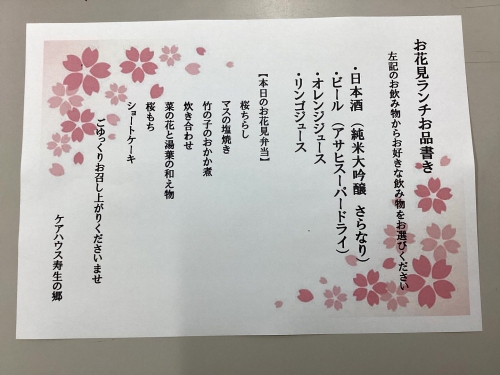 お花見ランチお品書き
左記のお飲み物からお好きな飲み物をお選びください
・日本酒（純米大吟醸 さらなり）
・ビール（アサヒスーパードライ）
・オレンジジュース
・リンゴジュース
【本日のお花見弁当】
桜ちらし
マスの塩焼き
竹の子のおかか煮
炊き合わせ
菜の花と湯葉の和え物
桜もち
ショートケーキ
ごゆっくりお召し上がりくださいませ
ケアハウス寿生の郷